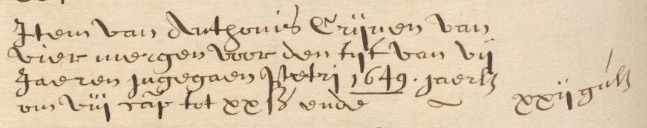 Item van Anthonis Crijnen van
vier mergen voor den tijt van vij
Jaeren ingegaen Petri 1649. jaerlx
om viij cap tot xx ß ende xxij gulx